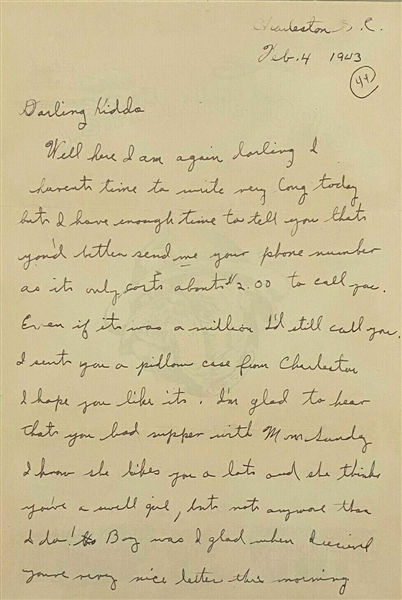 Charleston S. C.
Feb. 4 1943
44
Darling Kiddo
Well here I am again darling I
havents time to write very long today
buts I have enough time to tell you thats
you'd better send me your phone number
as its only costs about $2.00 to call you.
Even if its was a million I'd still call you.
I sents you a pillow case from Charleston
I hope you like its. I'm glad to hear
thats you had supper with Mom
I know she likes you a lots and she thinks
you're a swell girl, buts nots anymore than
I do! Boy was I glad when I received
youre very nice letter this morning